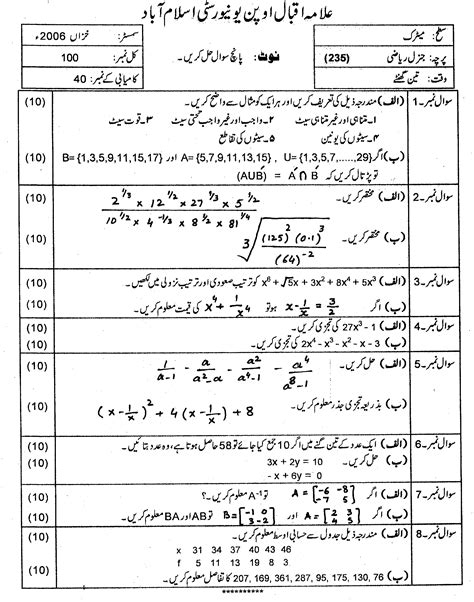 علامہ اقبال اوپن یونیورسٹی اسلام آباد
سطح: میٹرک
سمسٹر: خزاں 2006ء
پرچہ: جنرل ریاضی (235)
نوٹ: پانچ سوال حل کریں۔
کل نمبر: 100
وقت: تین گھنٹے
کامیابی کے نمبر: 40
سوال نمبر۔1 (الف) مندرجہ ذیل کی تعریف کریں اور ہر ایک کو مثال سے واضح کریں۔ (10)
۱۔ متناہی اور غیر متناہی سیٹ ۲۔ واجب اور غیر واجب تحتی سیٹ ۳۔ قوت سیٹ
۴۔ سیٹوں کی یونین ۵۔ سیٹوں کی تقاطع
(ب) اگر U= {1,3,5,7,......,29} ، A= {5,7,9,11,13,15} اور B= {1,3,5,9,11,15,17} (10)
تو پڑتال کریں کہ (AUB)' = A' ∩ B'
سوال نمبر۔2 (الف) مختصر کریں۔ (10)
2^1/3 x 12^1/2 x 27^1/3 x 5^1/2 / 10^1/2 x 4^-1/3 x 8^1/2 x 81^1/4
(ب) مختصر کریں۔ ∛((125)² (0.1)³ / (64)^-2) (10)
سوال نمبر۔3 (الف) x⁶ + √5x + 3x² + 8x⁴ + 5x³ کو ترتیب صعودی اور ترتیب نزولی میں لکھیں۔ (10)
(ب) اگر x - 1/x = 3/2 ہو تو x⁴ + 1/x⁴ کی قیمت معلوم کریں۔ (10)
سوال نمبر۔4 (الف) 27x³ - 1 کی تجزی کریں۔ (10)
(ب) 2x⁴ - x³ - x² - x - 3 کی تجزی کریں۔ (10)
سوال نمبر۔5 (الف) حل کریں۔ 1/a-1 - a/a²-a - a²/a⁴-1 - a⁴/a⁸-1 (10)
(ب) بذریعہ تجزی جذر معلوم کریں۔ (x - 1/x)² + 4(x - 1/x) + 8 (10)
سوال نمبر۔6 (الف) ایک عدد کے تین گنے میں اگر 10 جمع کیا جائے تو 58 حاصل ہوتا ہے، وہ عدد بتائیں۔ (10)
(ب) حل کریں۔ 3x + 2y = 10 (10)
- x + 6y = 0
سوال نمبر۔7 (الف) اگر A = [-6 -8 / -7 5] تو A⁻¹ معلوم کریں۔؟ (10)
(ب) اگر A = [2 3 / 4 5] اور B = [-1 0 / 3 -2] تو AB اور BA معلوم کریں۔ (10)
سوال نمبر۔8 (الف) مندرجہ ذیل جدول سے حسابی اوسط معلوم کریں۔ (10)
x 31 34 37 40 43 46
f 5 11 13 19 8 3
(ب) 207, 169, 361, 287, 95, 175, 130, 76 کا تفاصل معلوم کریں۔ (10)
**********